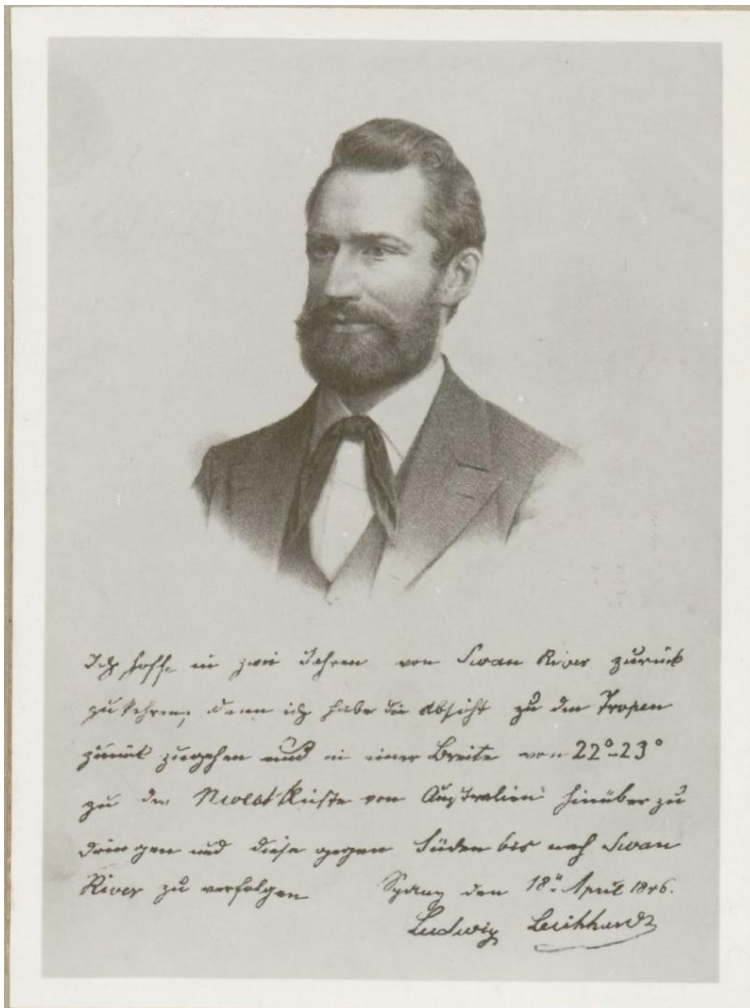 Ich hoffe in zwei Jahren von Swan River zurück
zukehren; denn ich habe die Absicht zu den Tropen
zurück zugehen und in einer Breite von 22°-23°
zu der NWestküste von Australien hinüber zu
dringen und diese gegen Süden bis nach Swan
River zu verfolgen Sydney den 18ⁿ April 1846.
Ludwig Leichhardt